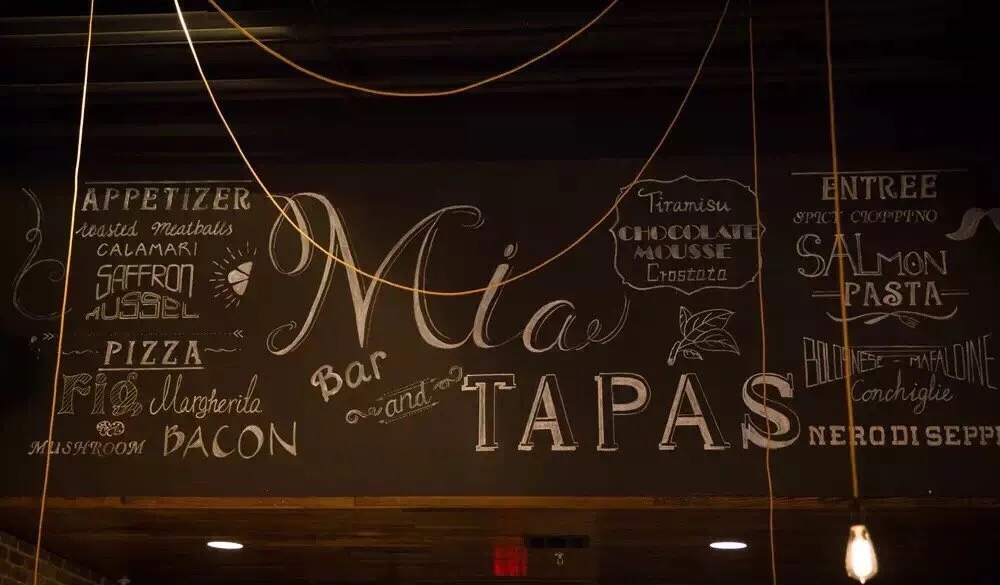 APPETIZER
roasted Meatballs
CALAMARI
SAFFRON
MUSSEL
PIZZA
Fig Margherita
MUSHROOM BACON
Mia
Bar and TAPAS
Tiramisu
CHOCOLATE
MOUSSE
Crostata
ENTREE
SPICY CIOPPINO
SALMON
PASTA
BOLOGNESE - MAFALDINE
Conchiglie
NERO DI SEPPI